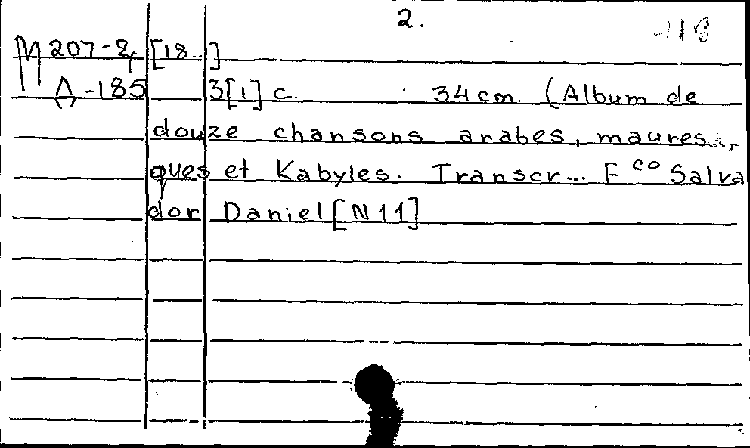 2.
M 207-2 [18 ]
A-185 3[1] c. 34cm (Album de
douze chansons arabes, maures-
ques et Kabyles. Transcr... F co Salva
dor Daniel [N 11]